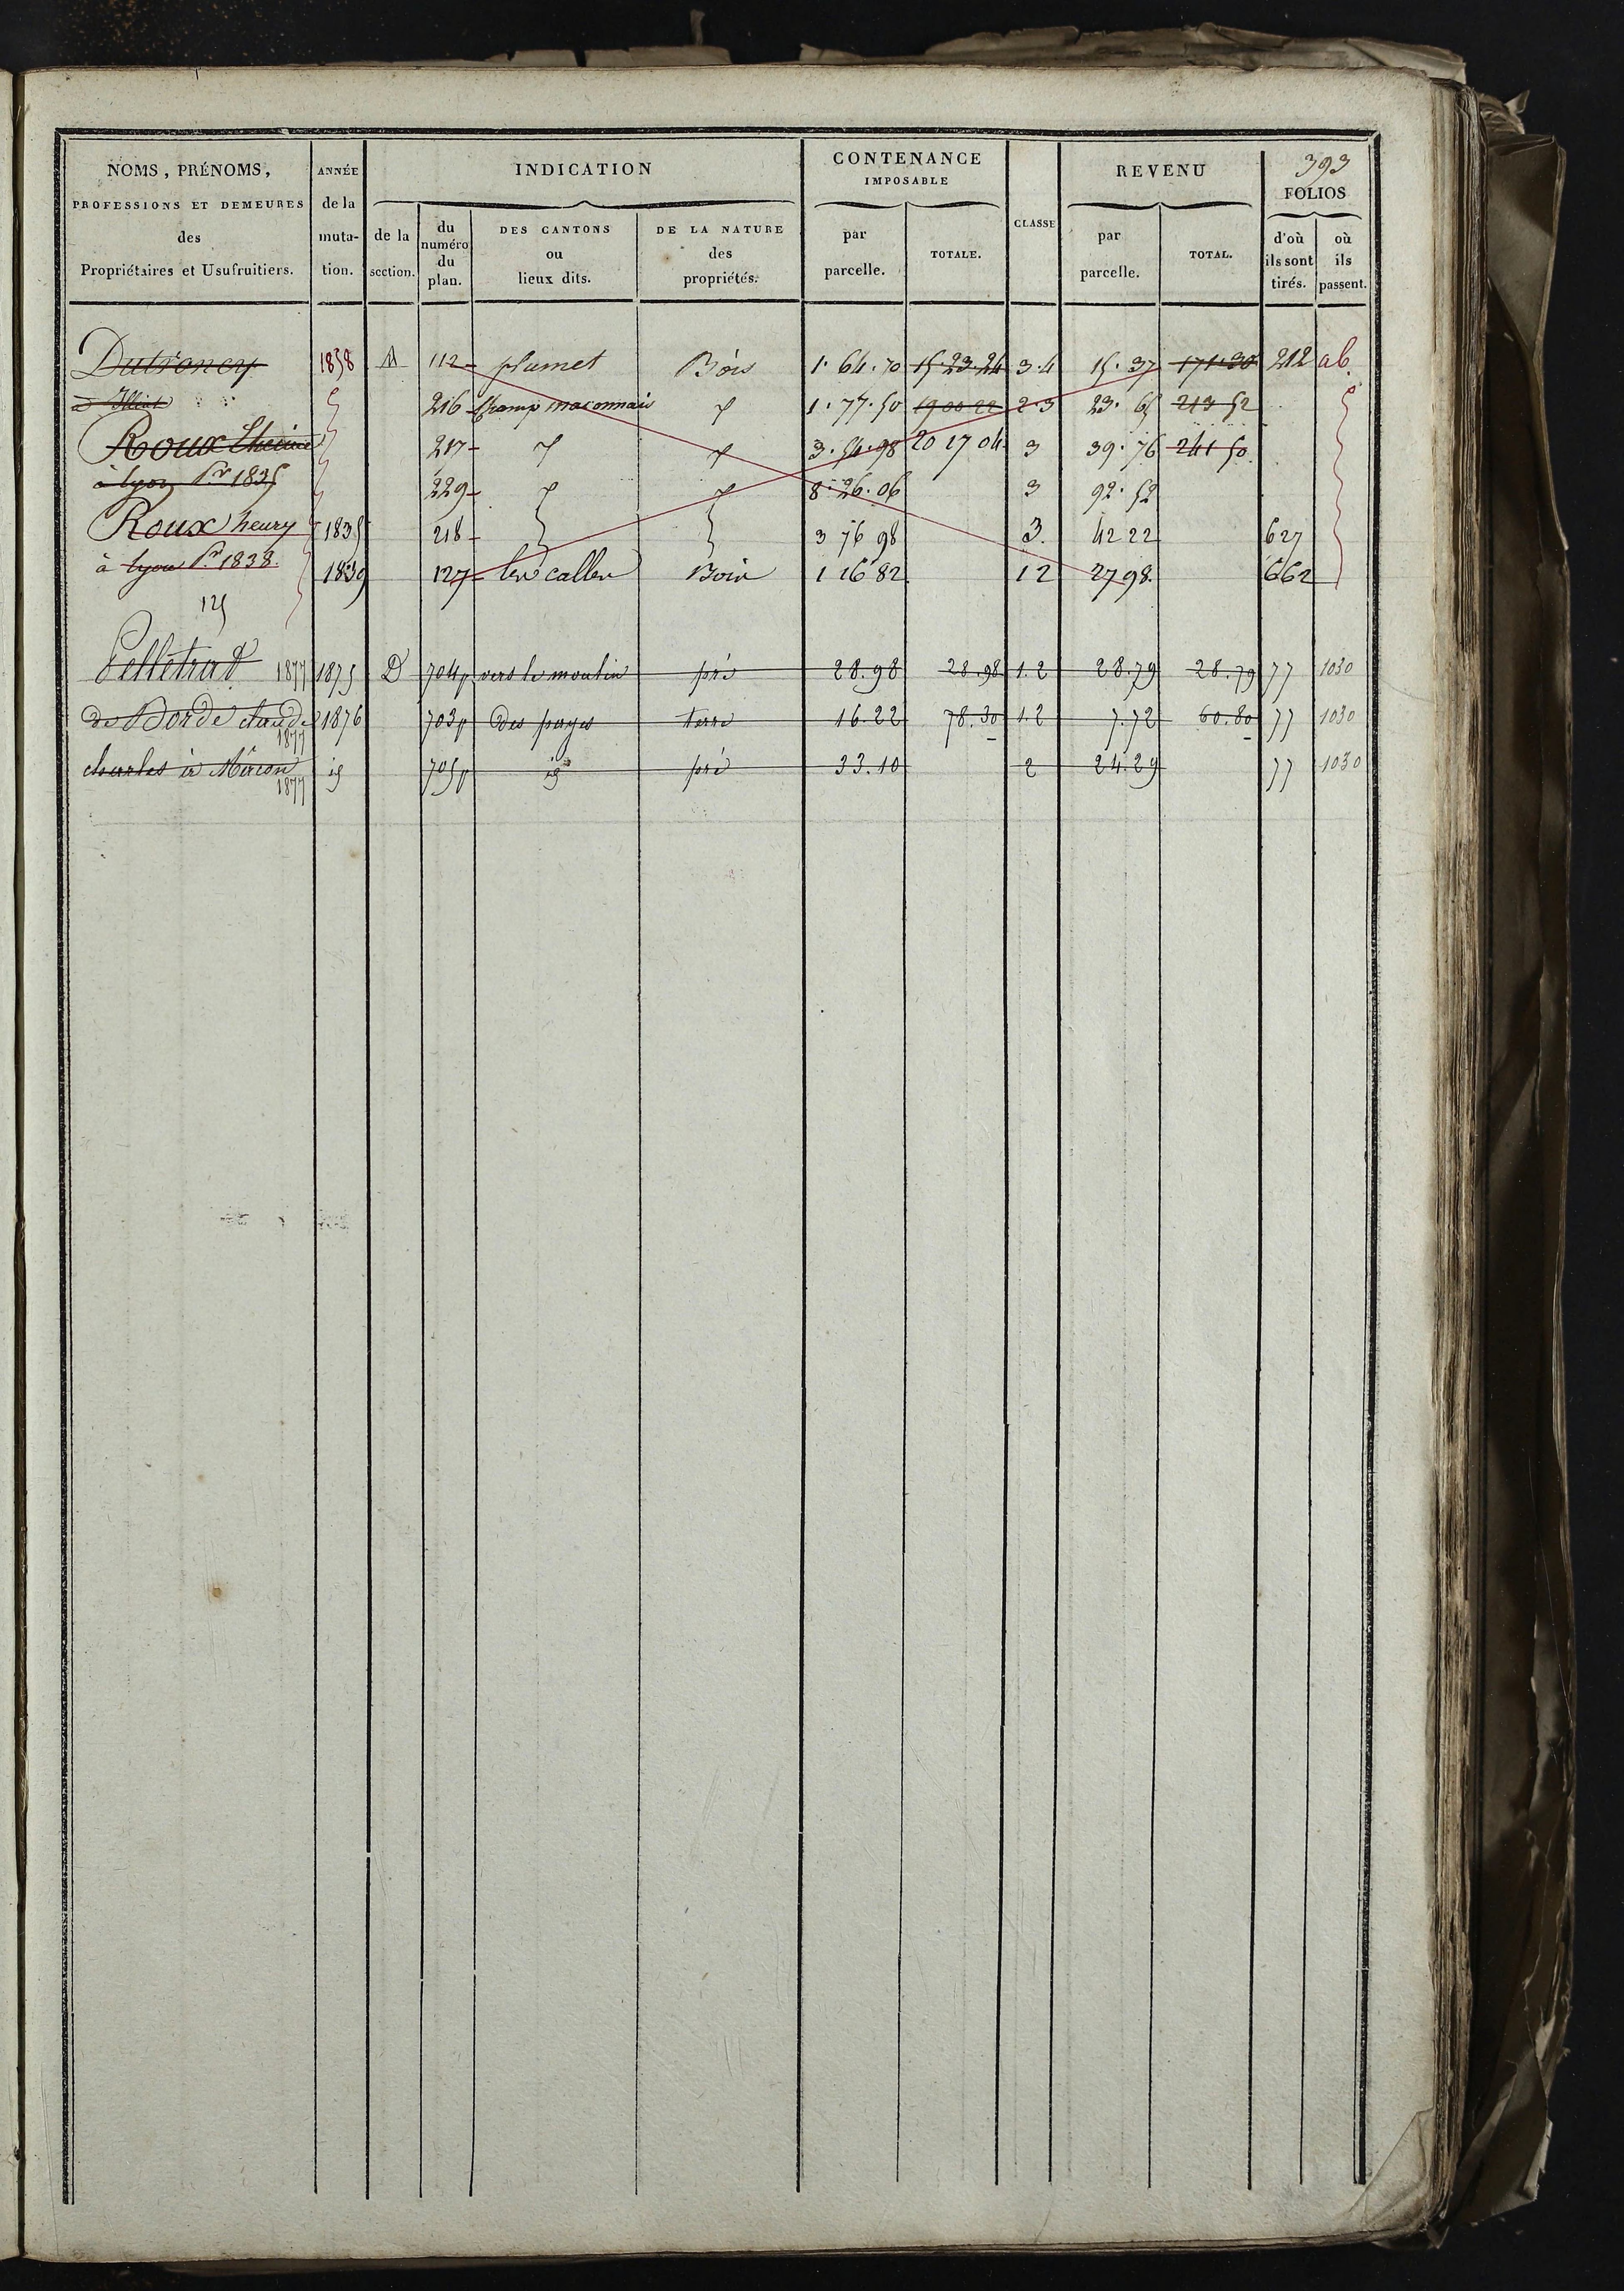 393
NOMS, PRÉNOMS, PROFESSIONS ET DEMEURES des Propriétaires et Usufruitiers. | ANNÉE de la muta- tion. | INDICATION de la section. | du numéro du plan. | DES CANTONS ou lieux dits. | DE LA NATURE des propriétés. | CONTENANCE IMPOSABLE par parcelle. | TOTALE. | CLASSE | REVENU par parcelle. | TOTAL. | FOLIOS d'où ils sont tirés. | où ils passent.
Dutroncy 1838 M 112 plumet Bois 1. 64. 70 15. 23. 24 3.4 15. 37 171. 30 212 ab.
216 Champ maconnais 1. 77. 50 19 00 22 2.3 23. 65 213 52
Roux 217 3. 54. 98 20 17 04 3 39. 76 241 50
à lyon Pr 1835 229 8. 26. 06 3 92. 52
Roux henry 1835 218 3 76 98 3. 42 22 627
à lyon Pr 1838. 1839 127 Bois 1 16 82 12 27 98. 662
125
Pelletrat 1877 1875 D 704p vers le moulin pré 28. 98 28. 98 1. 2 28. 79 28. 79 77 1030
de Borde claude 1877 1876 703p des payes terre 16. 22 78. 30 1. 2 7. 72 60. 80 77 1030
charles à Mâcon 1877 id 705p id pré 33. 10 2 24. 29 77 1030